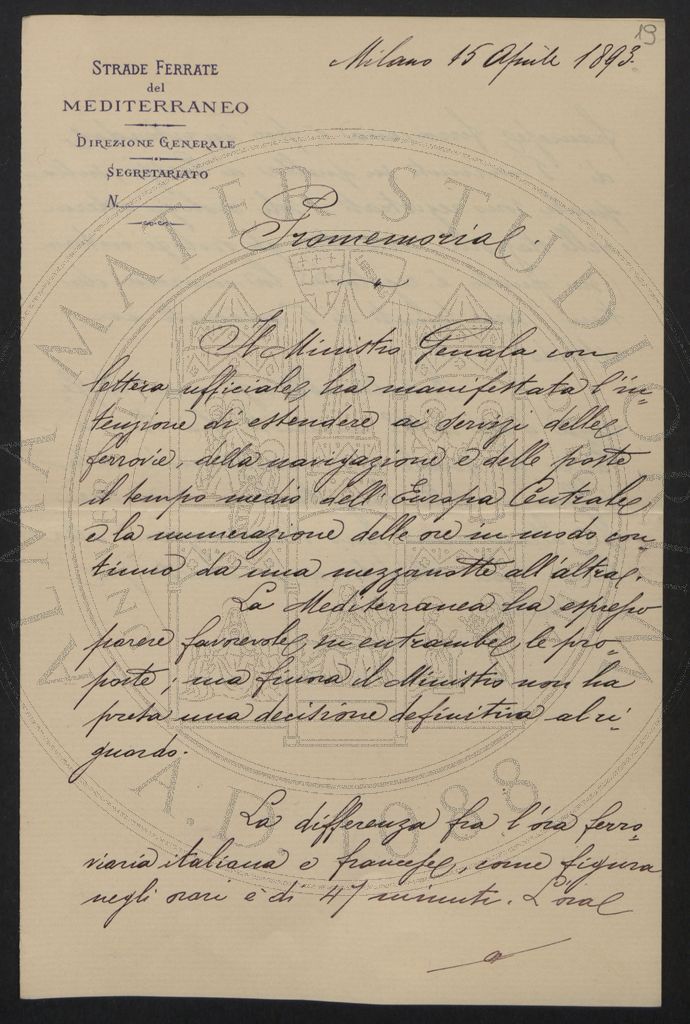 19
Milano 15 Aprile 1893.
STRADE FERRATE
del
MEDITERRANEO
DIREZIONE GENERALE
SEGRETARIATO
N.
Promemoria.
Il Ministro Genala con
lettera ufficiale, ha manifestata l'in-
tenzione di estendere ai servizi delle
ferrovie, della navigazione e delle poste
il tempo medio dell'Europa Centrale
e la numerazione delle ore in modo con
tinuo da una mezzanotte all'altra.
La Mediterranea ha espresso
parere favorevole su entrambe le pro-
poste; ma finora il Ministro non ha
presa una decisione definitiva al ri-
guardo.
La differenza fra l'ora ferro-
viaria italiana e francese, come figura
negli orari è di 47 minuti. L'ora
ALMA MATER STUDIORUM
A.D. 1088